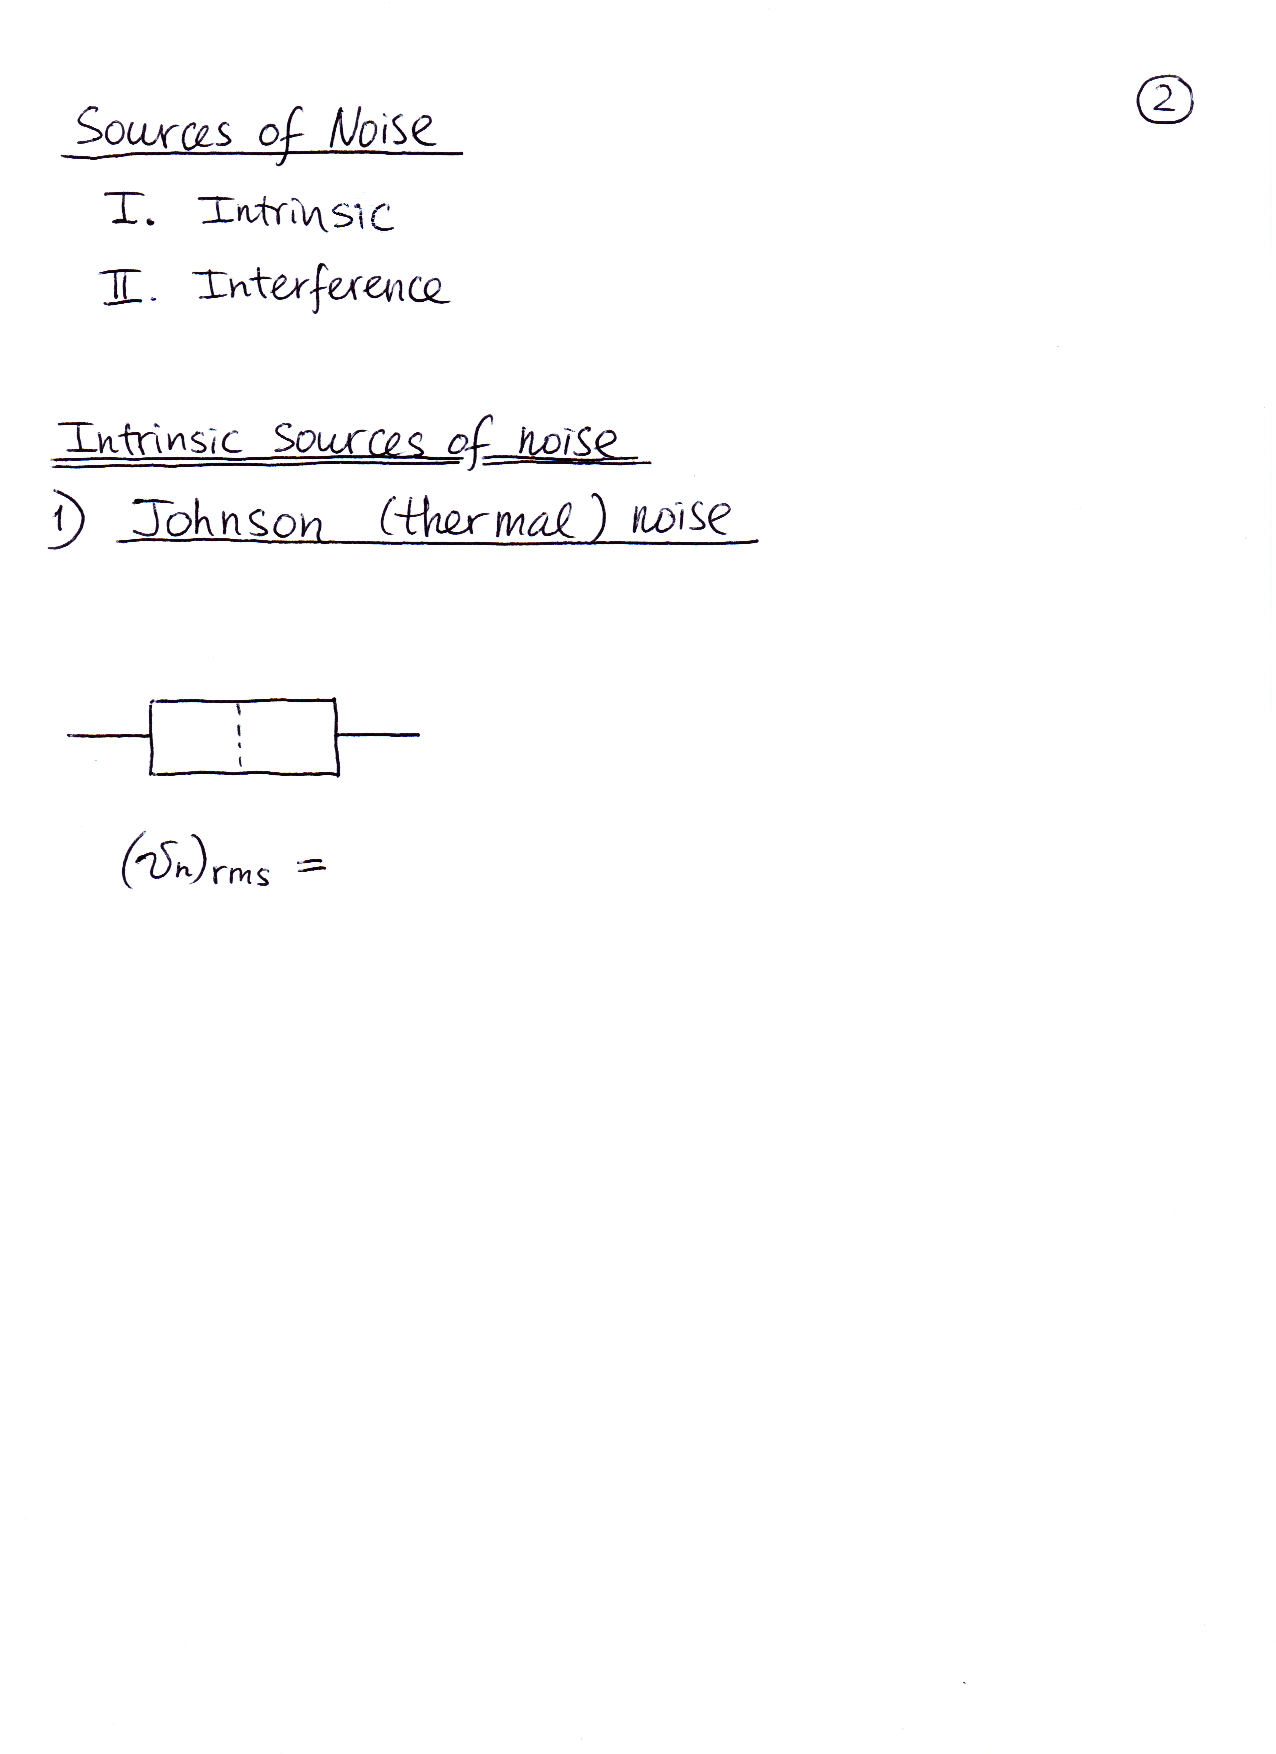 2
Sources of Noise
I. Intrinsic
II. Interference
Intrinsic Sources of noise
1) Johnson (thermal) noise
(vn)rms =